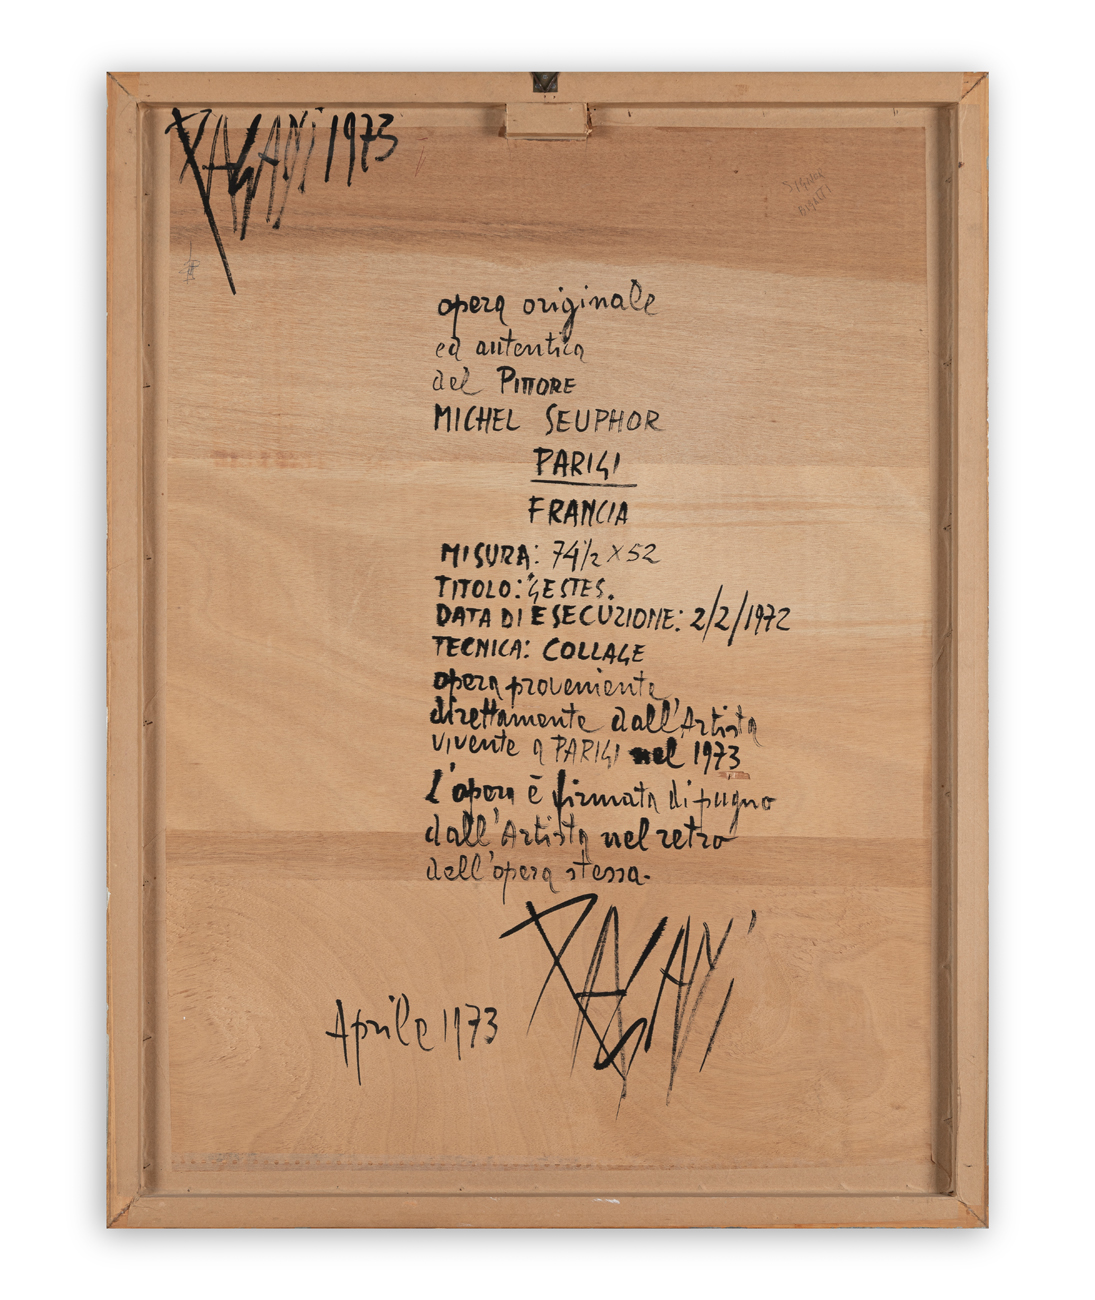 PAGANI 1973
opera originale
ed autentica
del PITTORE
MICHEL SEUPHOR
PARIGI
FRANCIA
MISURA: 74 1/2 X 52
TITOLO: "GESTES.
DATA DI ESECUZIONE: 2/2/1972
TECNICA: COLLAGE
opera proveniente
direttamente dall'Artista
vivente a PARIGI nel 1973
L'opera è firmata di pugno
dall'Artista nel retro
dell'opera stessa.
PAGANI
Aprile 1973